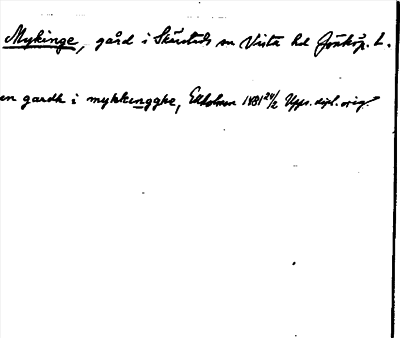 Mykinge, gård i Skärstads sn Vista hd Jönköp. l.
en gardh i mykkingghe, Ekholmen 1481 24/2 Upps. dipl. orig.